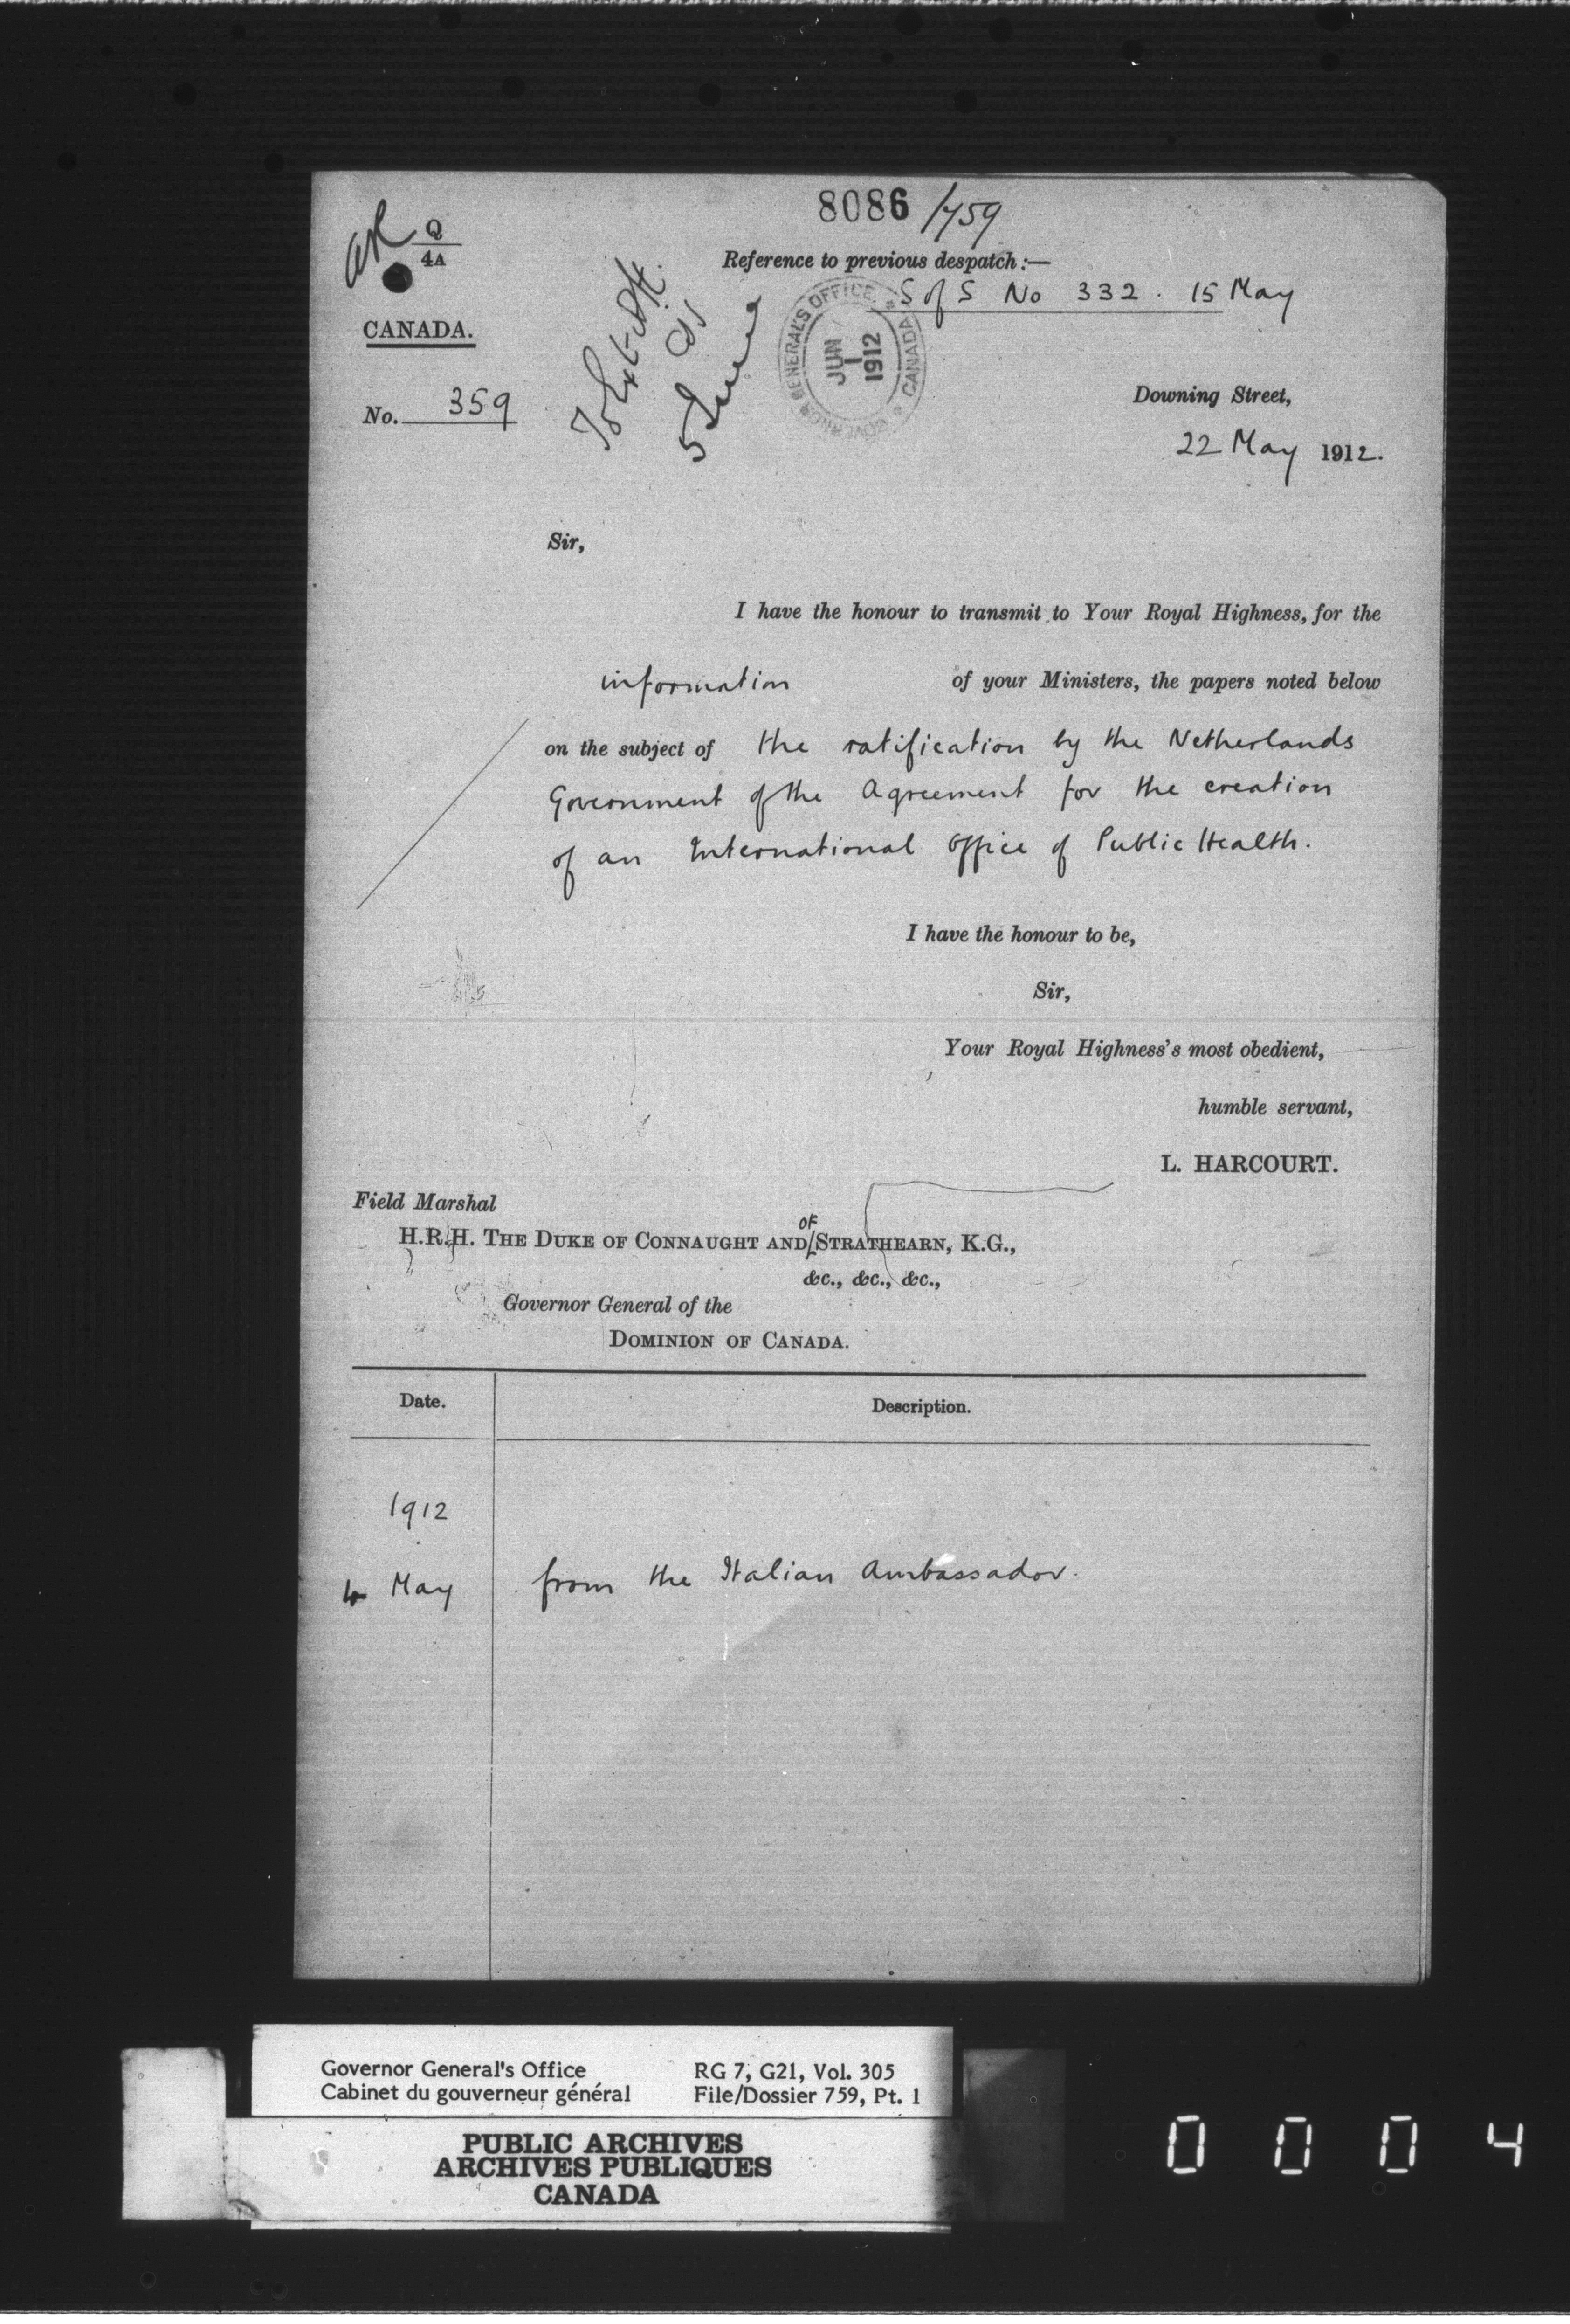 8086/759
Q
4A
Reference to previous despatch:—
S of S No 332. 15 May
CANADA.
GOVERNOR GENERAL'S OFFICE * CANADA *
JUN
1
1912
To Ext. Aff.
5 June
No. 359
Downing Street,
22 May 1912.
Sir,
I have the honour to transmit to Your Royal Highness, for the
information of your Ministers, the papers noted below
on the subject of the ratification by the Netherlands
Government of the Agreement for the creation
of an International Office of Public Health.
I have the honour to be,
Sir,
Your Royal Highness's most obedient,
humble servant,
L. HARCOURT.
Field Marshal
H.R.H. THE DUKE OF CONNAUGHT AND OF STRATHEARN, K.G.,
&c., &c., &c.,
Governor General of the
DOMINION OF CANADA.
Date. Description.
1912
4 May from the Italian Ambassador.
Governor General's Office RG 7, G21, Vol. 305
Cabinet du gouverneur général File/Dossier 759, Pt. 1
PUBLIC ARCHIVES
ARCHIVES PUBLIQUES
CANADA
0004